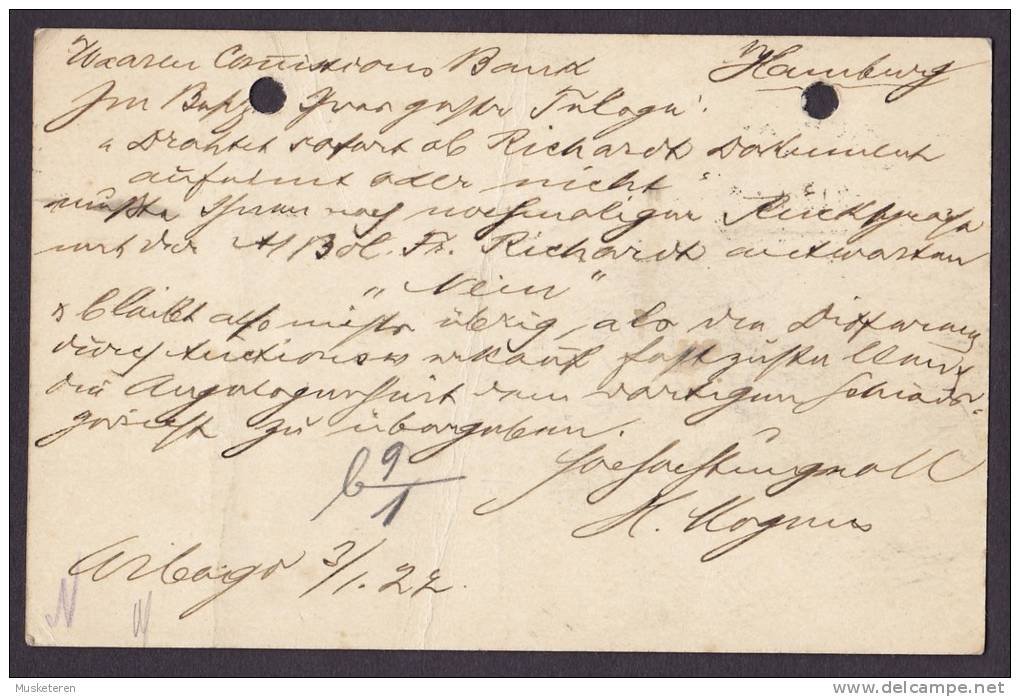 Waaren Comissions Bank Hamburg
Im Besitz Ihres
"Drahtet sofort ob Richardt Dokument
aufnimt oder nicht"
mußte Ihnen nach nochmaliger Rücksprache
mit der Fr. Richardt antworten
"Nein"
bleibt also nichts übrig, als den Differenz
durch Auctionsverkauf festzustellen
die Angelegenheit dem dortigen Schieds-
gericht zu übergeben.
Hochachtungsvoll
H. Magnus
b 9/1
3/1. 22.
N
N
Musketeren
delcampe.net